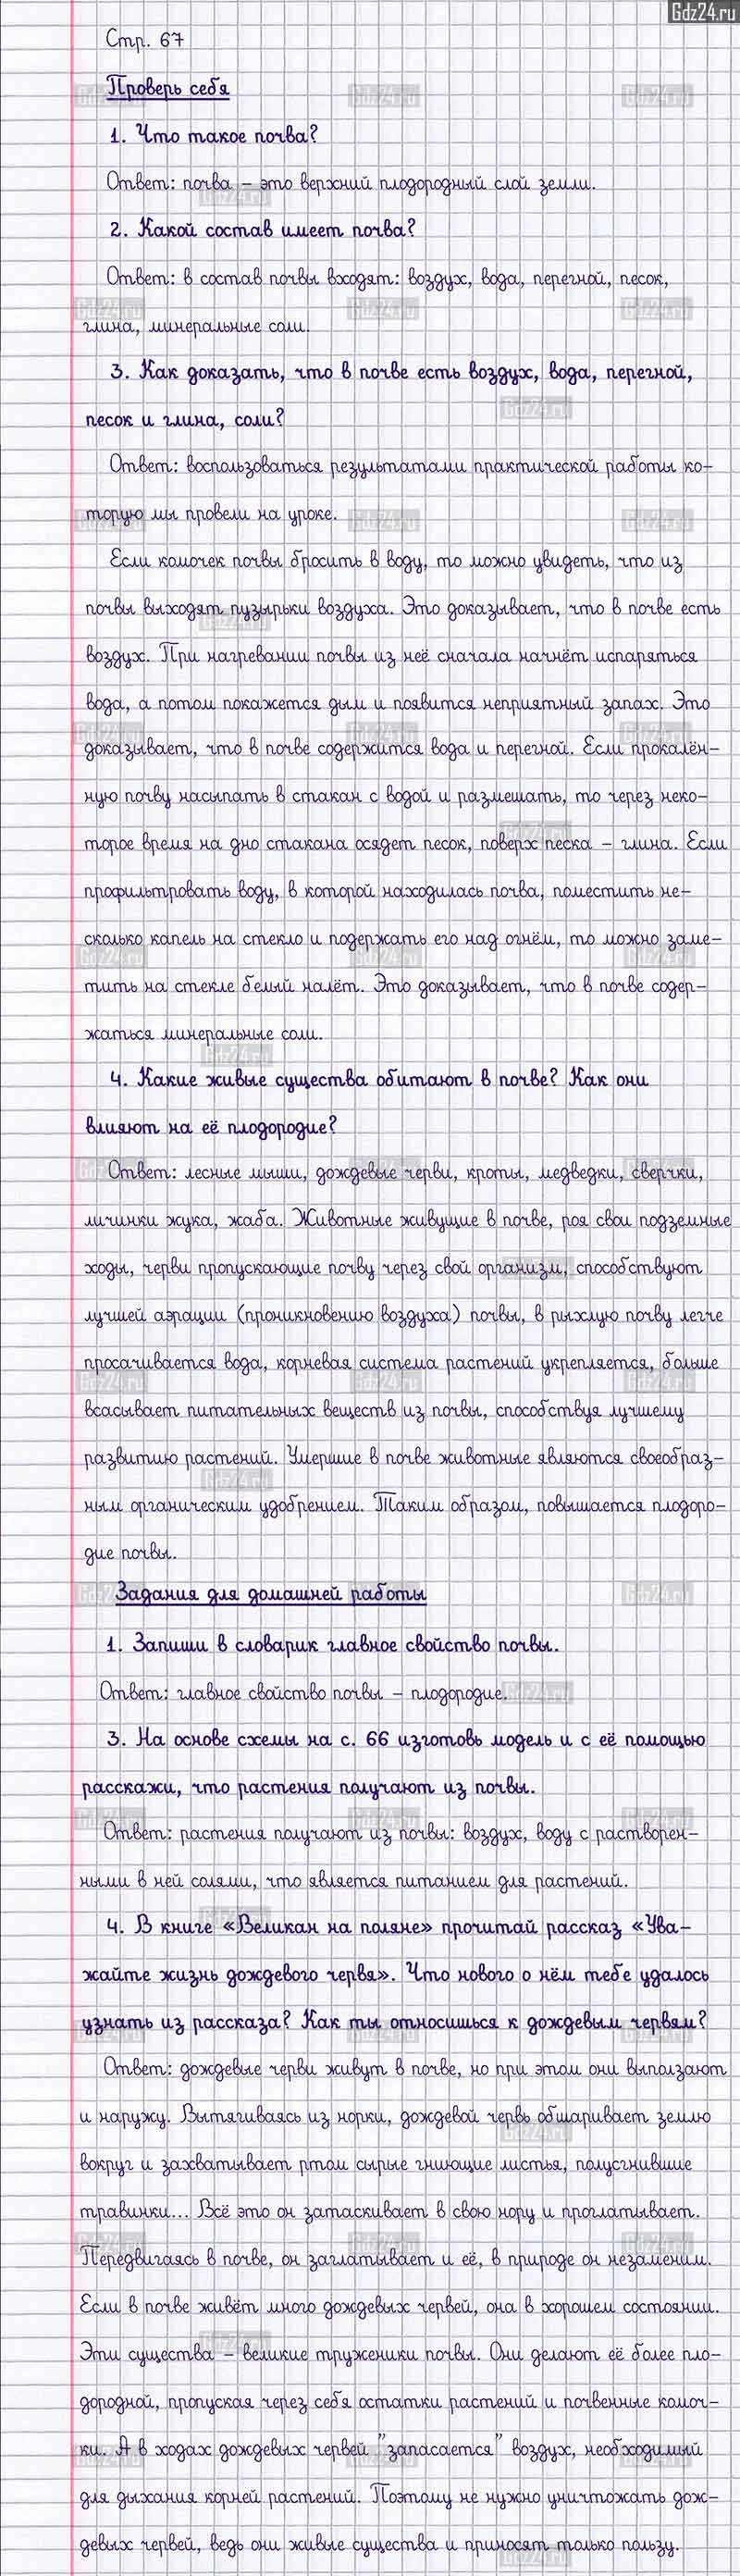 Gdz24.ru
Стр. 67
Проверь себя
1. Что такое почва?
Ответ: почва – это верхний плодородный слой земли.
2. Какой состав имеет почва?
Ответ: в состав почвы входят: воздух, вода, перегной, песок,
глина, минеральные соли.
3. Как доказать, что в почве есть воздух, вода, перегной,
песок и глина, соли?
Ответ: воспользоваться результатами практической работы ко-
торую мы провели на уроке.
Если комочек почвы бросить в воду, то можно увидеть, что из
почвы выходят пузырьки воздуха. Это доказывает, что в почве есть
воздух. При нагревании почвы из неё сначала начнёт испаряться
вода, а потом покажется дым и появится неприятный запах. Это
доказывает, что в почве содержится вода и перегной. Если прокалён-
ную почву насыпать в стакан с водой и размешать, то через неко-
торое время на дно стакана осядет песок, поверх песка – глина. Если
профильтровать воду, в которой находилась почва, поместить не-
сколько капель на стекло и подержать его над огнём, то можно заме-
тить на стекле белый налёт. Это доказывает, что в почве содер-
жаться минеральные соли.
4. Какие живые существа обитают в почве? Как они
влияют на её плодородие?
Ответ: лесные мыши, дождевые черви, кроты, медведки, сверчки,
личинки жука, жаба. Животные живущие в почве, роя свои подземные
ходы, черви пропускающие почву через свой организм, способствуют
лучшей аэрации (проникновению воздуха) почвы, в рыхлую почву легче
просачивается вода, корневая система растений укрепляется, больше
всасывает питательных веществ из почвы, способствуя лучшему
развитию растений. Умершие в почве животные являются своеобраз-
ным органическим удобрением. Таким образом, повышается плодоро-
дие почвы.
Задания для домашней работы
1. Запиши в словарик главное свойство почвы.
Ответ: главное свойство почвы – плодородие.
3. На основе схемы на с. 66 изготовь модель и с её помощью
расскажи, что растения получают из почвы.
Ответ: растения получают из почвы: воздух, воду с растворен-
ными в ней солями, что является питанием для растений.
4. В книге «Великан на поляне» прочитай рассказ «Ува-
жайте жизнь дождевого червя». Что нового о нём тебе удалось
узнать из рассказа? Как ты относишься к дождевым червям?
Ответ: дождевые черви живут в почве, но при этом они выползают
и наружу. Вытягиваясь из норки, дождевой червь обшаривает землю
вокруг и захватывает ртом сырые гниющие листья, полусгнившие
травинки... Всё это он затаскивает в свою нору и проглатывает.
Передвигаясь в почве, он заглатывает и её, в природе он незаменим.
Если в почве живёт много дождевых червей, она в хорошем состоянии.
Эти существа – великие труженики почвы. Они делают её более пло-
дородной, пропуская через себя остатки растений и почвенные комоч-
ки. А в ходах дождевых червей "запасается" воздух, необходимый
для дыхания корней растений. Поэтому не нужно уничтожать дож-
девых червей, ведь они живые существа и приносят только пользу.